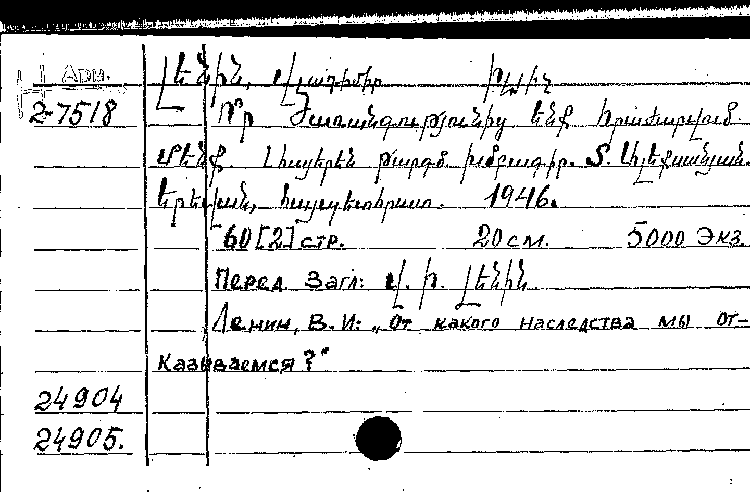 Арм.
2-7518
Լենին, Վլադիմիր Իլյիչ
Ո՞ր Ժառանգությունից ենք հրաժարվում
մենք. Հայերեն թարգմ. խմբագիր. Տ.
Երեվան, հայպետհրատ. 1946.
60 [2] стр. 20 см. 5000 экз.
Перед Загл: Վ. Ի. Լենին
Ленин, В. И: „От какого наследства мы от-
казываемся?"
24904
24905.